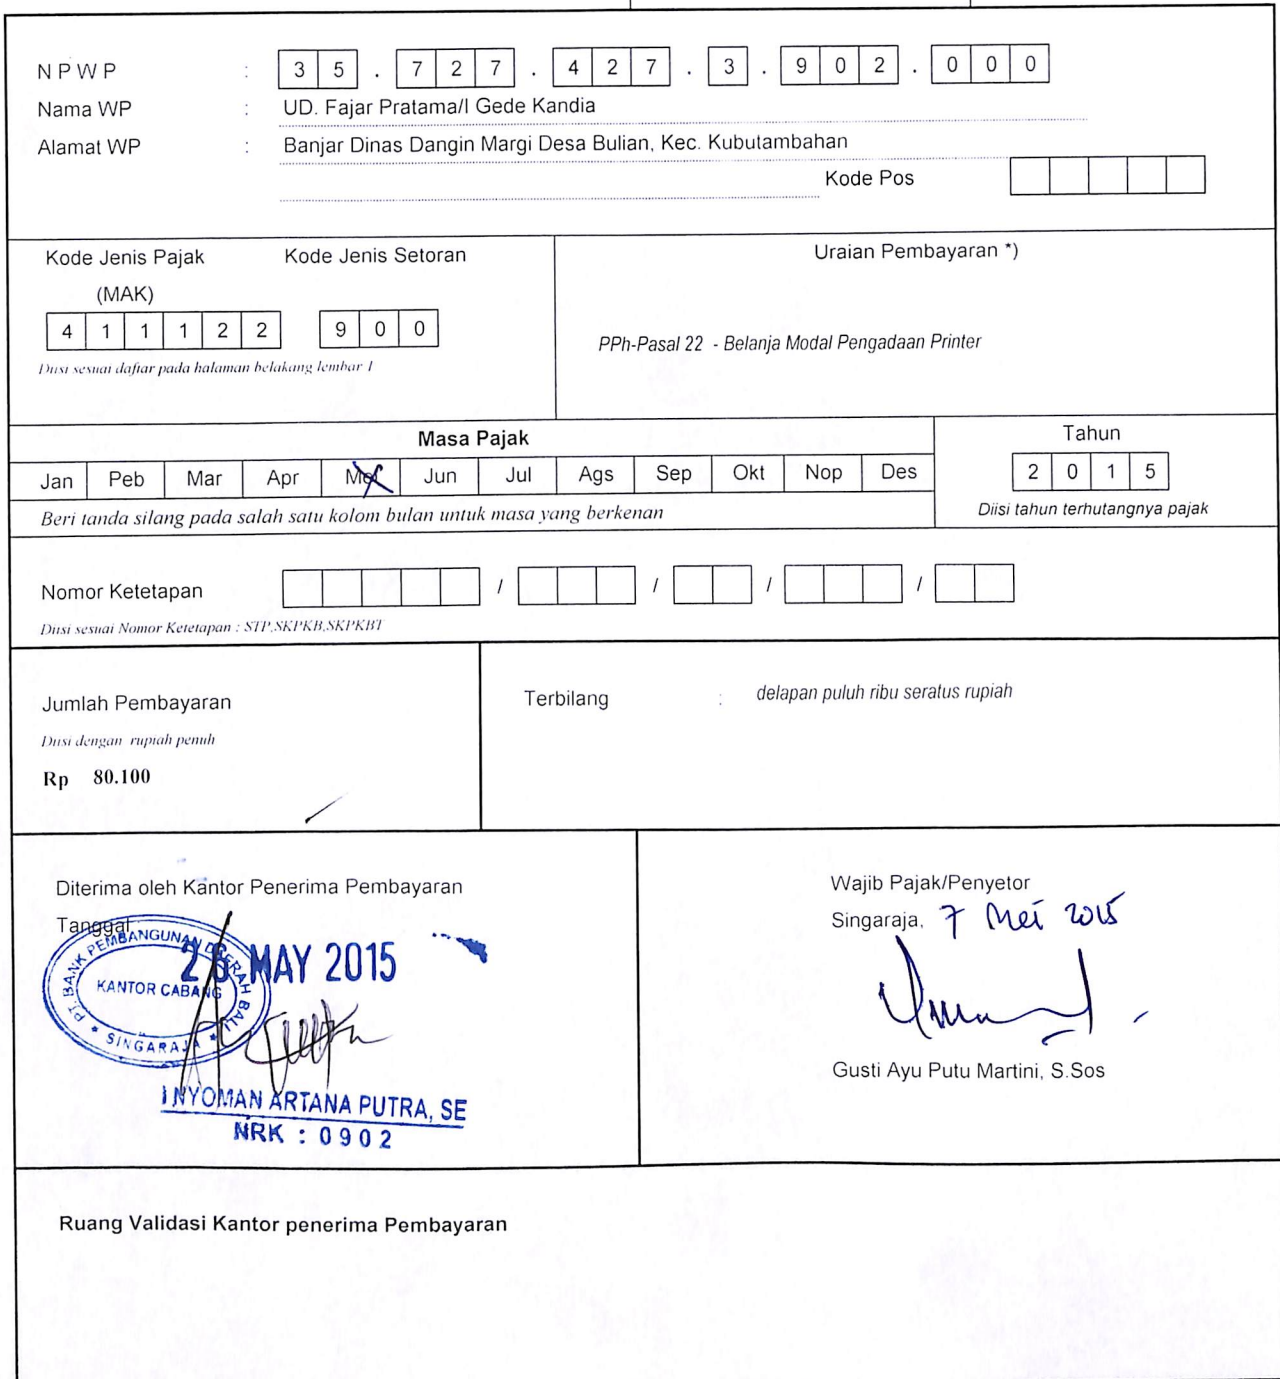 N P W P : 3 5 . 7 2 7 . 4 2 7 . 3 . 9 0 2 . 0 0 0
Nama WP : UD. Fajar Pratama/I Gede Kandia
Alamat WP : Banjar Dinas Dangin Margi Desa Bulian, Kec. Kubutambahan
Kode Pos
Kode Jenis Pajak Kode Jenis Setoran
(MAK)
4 1 1 1 2 2 9 0 0
Diisi sesuai daftar pada halaman belakang lembar 1
Uraian Pembayaran *)
PPh-Pasal 22 - Belanja Modal Pengadaan Printer
Masa Pajak
Jan Peb Mar Apr Mei Jun Jul Ags Sep Okt Nop Des
Beri tanda silang pada salah satu kolom bulan untuk masa yang berkenan
Tahun
2 0 1 5
Diisi tahun terhutangnya pajak
Nomor Ketetapan / / / /
Diisi sesuai Nomor Ketetapan : STP,SKPKB,SKPKBT
Jumlah Pembayaran
Diisi dengan rupiah penuh
Rp 80.100
Terbilang : delapan puluh ribu seratus rupiah
Diterima oleh Kantor Penerima Pembayaran
Tanggal
PT. BANK PEMBANGUNAN DAERAH BALI
KANTOR CABANG
* SINGARAJA *
MAY 2015
I NYOMAN ARTANA PUTRA, SE
NRK : 0902
Wajib Pajak/Penyetor
Singaraja, 7 Mei 2015
Gusti Ayu Putu Martini, S.Sos
Ruang Validasi Kantor penerima Pembayaran